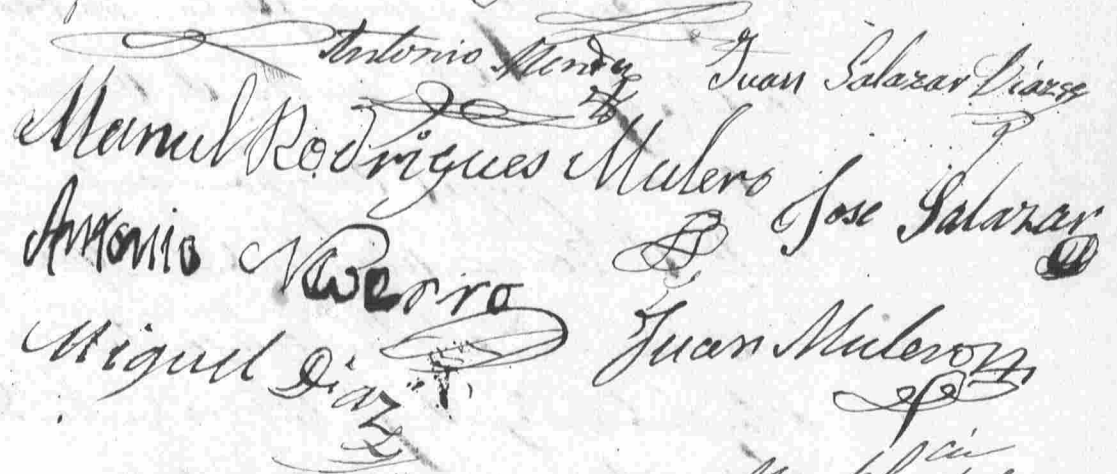 Antonio Mendez Juan Salazar Diaz
Manuel Rodrigues Mulero Jose Salazar
Antonio
Miguel Diaz Juan Mulero